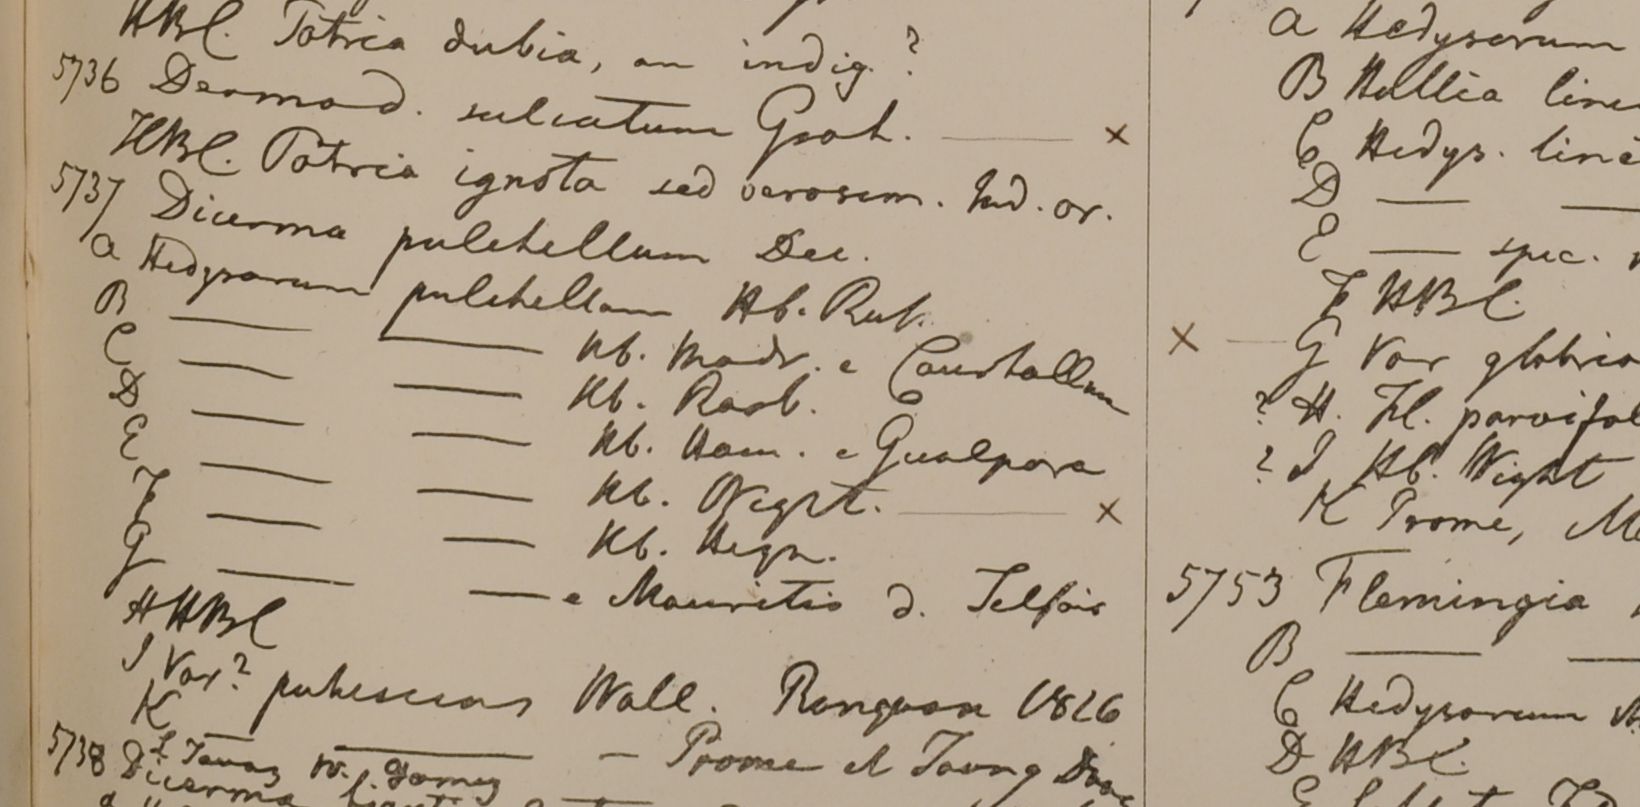 HBC. Patria dubia, an indig.?
5736 Desmod. sulcatum Grah. ——— ×
HBC. Patria ignota sed verosim. Ind. or.
5737 Dicerma pulchellum Dec.
a Hedysarum pulchellum Hb. Rub.
B —— —— Hb. Madr. e Courtallum
C —— —— Hb. Roxb.
D —— —— Hb. Ham. e Gualpara
E —— —— Hb. Wight. ——— ×
F —— —— Hb. Heyn.
G —— —— e Mauritio d. Telfair
H HBC
I Var? pubescens Wall. Rangoon 1826
K —— —— — Prome et Taong Dong
L Tavoy W. Gomez
5738 Dicerma
a Hedysarum
B Hallia
C Hedys.
D —— ——
E —— spec.
F HBC.
× — G Var glabrio
? H. Fl.
? I Hb. Wight
K Prome,
5753 Flemingia
B —— ——
C Hedysarum
D HBC.